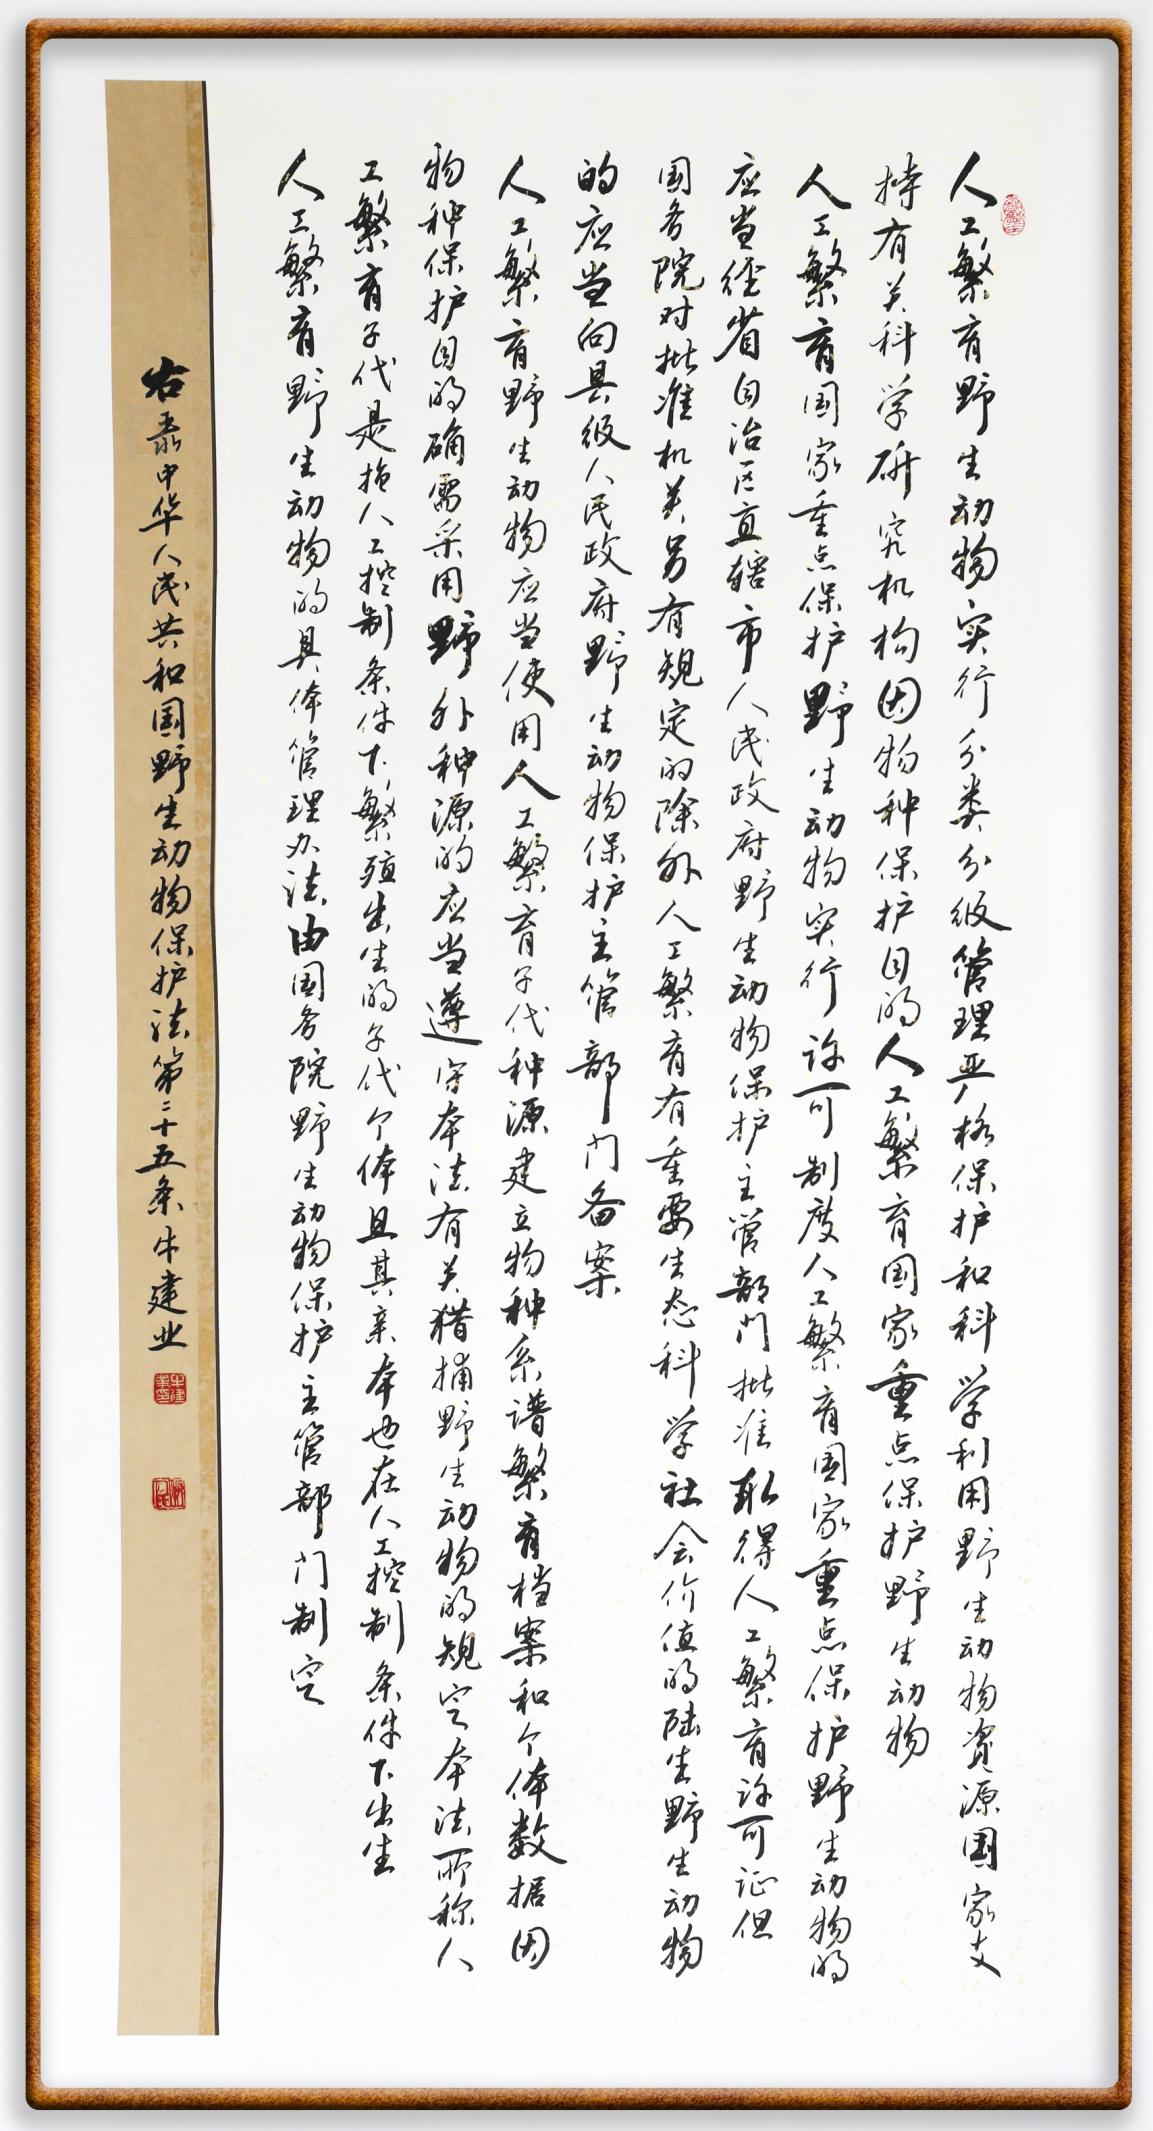 人工繁育野生动物实行分类分级管理严格保护和科学利用野生动物资源国家支
持有关科学研究机构因物种保护目的人工繁育国家重点保护野生动物
人工繁育国家重点保护野生动物实行许可制度人工繁育国家重点保护野生动物的
应当经省自治区直辖市人民政府野生动物保护主管部门批准取得人工繁育许可证但
国务院对批准机关另有规定的除外人工繁育有重要生态科学社会价值的陆生野生动物
的应当向县级人民政府野生动物保护主管部门备案
人工繁育野生动物应当使用人工繁育子代种源建立物种系谱繁育档案和个体数据因
物种保护目的确需采用野外种源的应当遵守本法有关猎捕野生动物的规定本法所称人
工繁育子代是指人工控制条件下繁殖出生的子代个体且其亲本也在人工控制条件下出生
人工繁育野生动物的具体管理办法由国务院野生动物保护主管部门制定
右录中华人民共和国野生动物保护法第二十五条牛建业